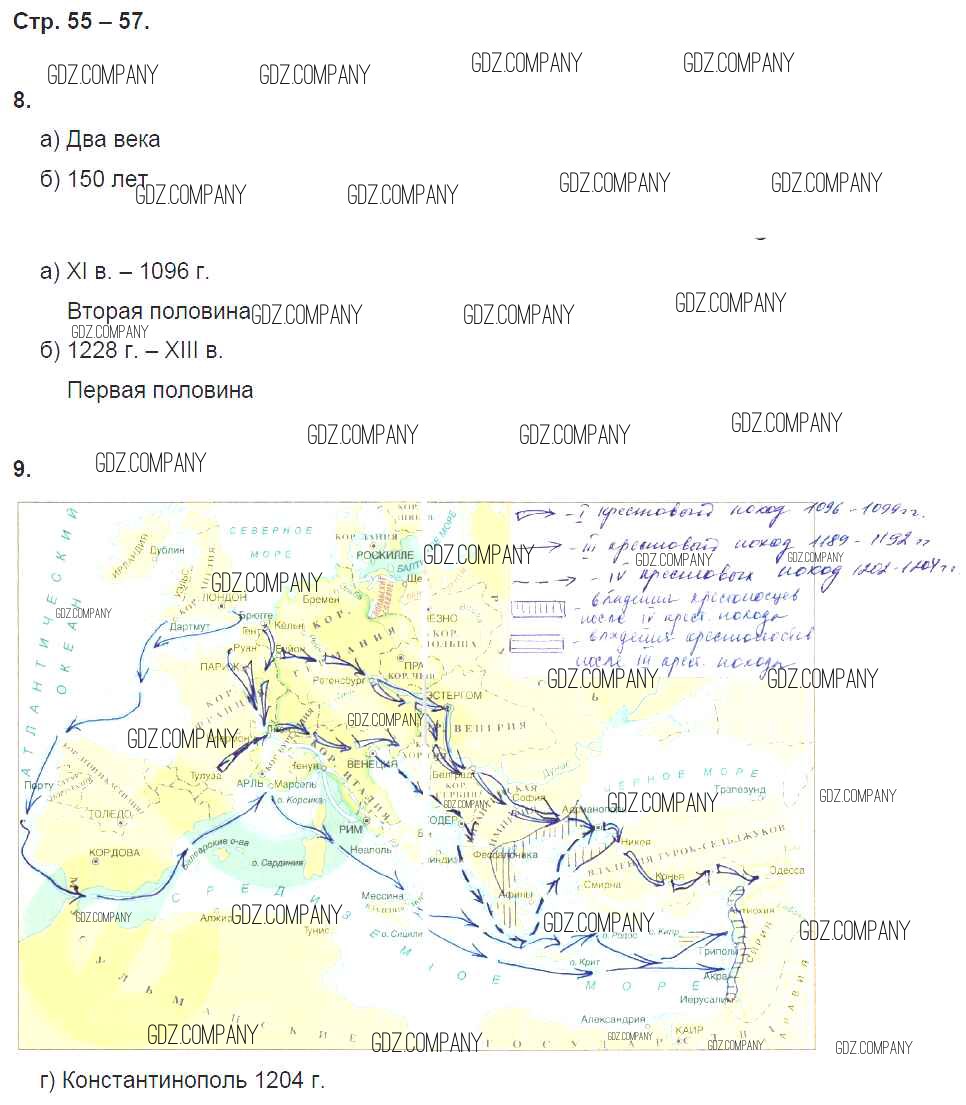 Стр. 55 – 57.
GDZ.COMPANY GDZ.COMPANY GDZ.COMPANY GDZ.COMPANY
8.
а) Два века
б) 150 лет
GDZ.COMPANY GDZ.COMPANY GDZ.COMPANY GDZ.COMPANY
а) XI в. – 1096 г.
Вторая половина
GDZ.COMPANY GDZ.COMPANY GDZ.COMPANY
GDZ.COMPANY
б) 1228 г. – XIII в.
Первая половина
GDZ.COMPANY GDZ.COMPANY GDZ.COMPANY
GDZ.COMPANY
9.
- I крестовый поход 1096 - 1099 гг.
- III крестовый поход 1189 - 1192 гг
- IV крестовый поход 1202-1204 гг.
- владения крестоносцев
после IV крест. похода
- владения крестоносцев
после III крест. похода
АТЛАНТИЧЕСКИЙ
ОКЕАН
СЕВЕРНОЕ
МОРЕ
РОСКИЛЛЕ
ИРЛАНДИЯ
Дублин
УЭЛЬС
ЛОНДОН
Бремен
Дартмут
Брюгге
Гент
Кёльн
Руан
ПАРИЖ
Регенсбург
ЭСТЕРГОМ
ВЕНГРИЯ
ВЕНЕЦИЯ
Генуя
Тулуза
АРЛЬ
Марсель
о. Корсика
Порту
ТОЛЕДО
КОРДОВА
Балеарские о-ва
о. Сардиния
РИМ
Неаполь
Белград
София
Адрианополь
ЧЕРНОЕ МОРЕ
Трапезунд
Никея
ВЛАДЕНИЯ ТУРОК-СЕЛЬДЖУКОВ
Фессалоника
Смирна
Конья
Эдесса
Афины
Мессина
о. Сицилия
Тунис
СРЕДИЗЕМНОЕ МОРЕ
о. Родос
о. Кипр
о. Крит
Антиохия
СИРИЯ
Триполи
Акра
Иерусалим
АРАВИЯ
Александрия
КАИР
МУСУЛЬМАНСКИЕ ГОСУДАРСТВА
GDZ.COMPANY GDZ.COMPANY GDZ.COMPANY GDZ.COMPANY GDZ.COMPANY
г) Константинополь 1204 г.